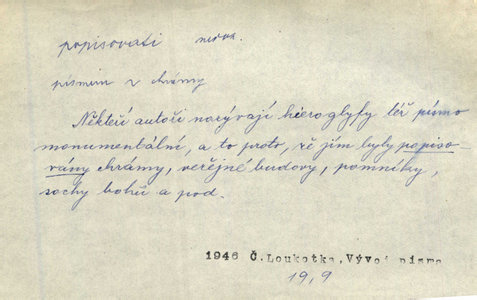 popisovati
písmem z chrámy
Někteří autoři nazývají hieroglyfy též písmo
monumentální, a to proto, že jím byly popiso-
vány chrámy, veřejné budovy, pomníky,
sochy bohů a pod.
1946 Č.Loukotka,Vývoj písma
19,9